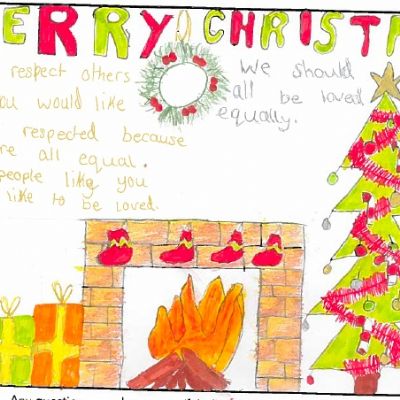 ERRY CHRIST
respect others
ou would like
respected because
re all equal.
people like you
like to be loved.
We should
all be loved
equally.